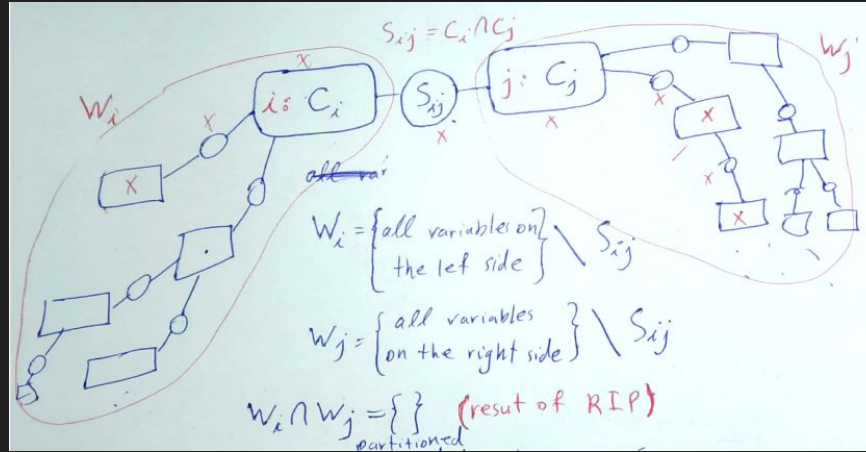 S_ij = C_i ∩ C_j
x
W_i
x
i: C_i
S_ij
x
j: C_j
x
W_j
x
x
x
x
x
all var
W_i = {all variables on
the lef side} \ S_ij
W_j = {all variables
on the right side} \ S_ij
W_i ∩ W_j = { } (resut of RIP)
partitioned